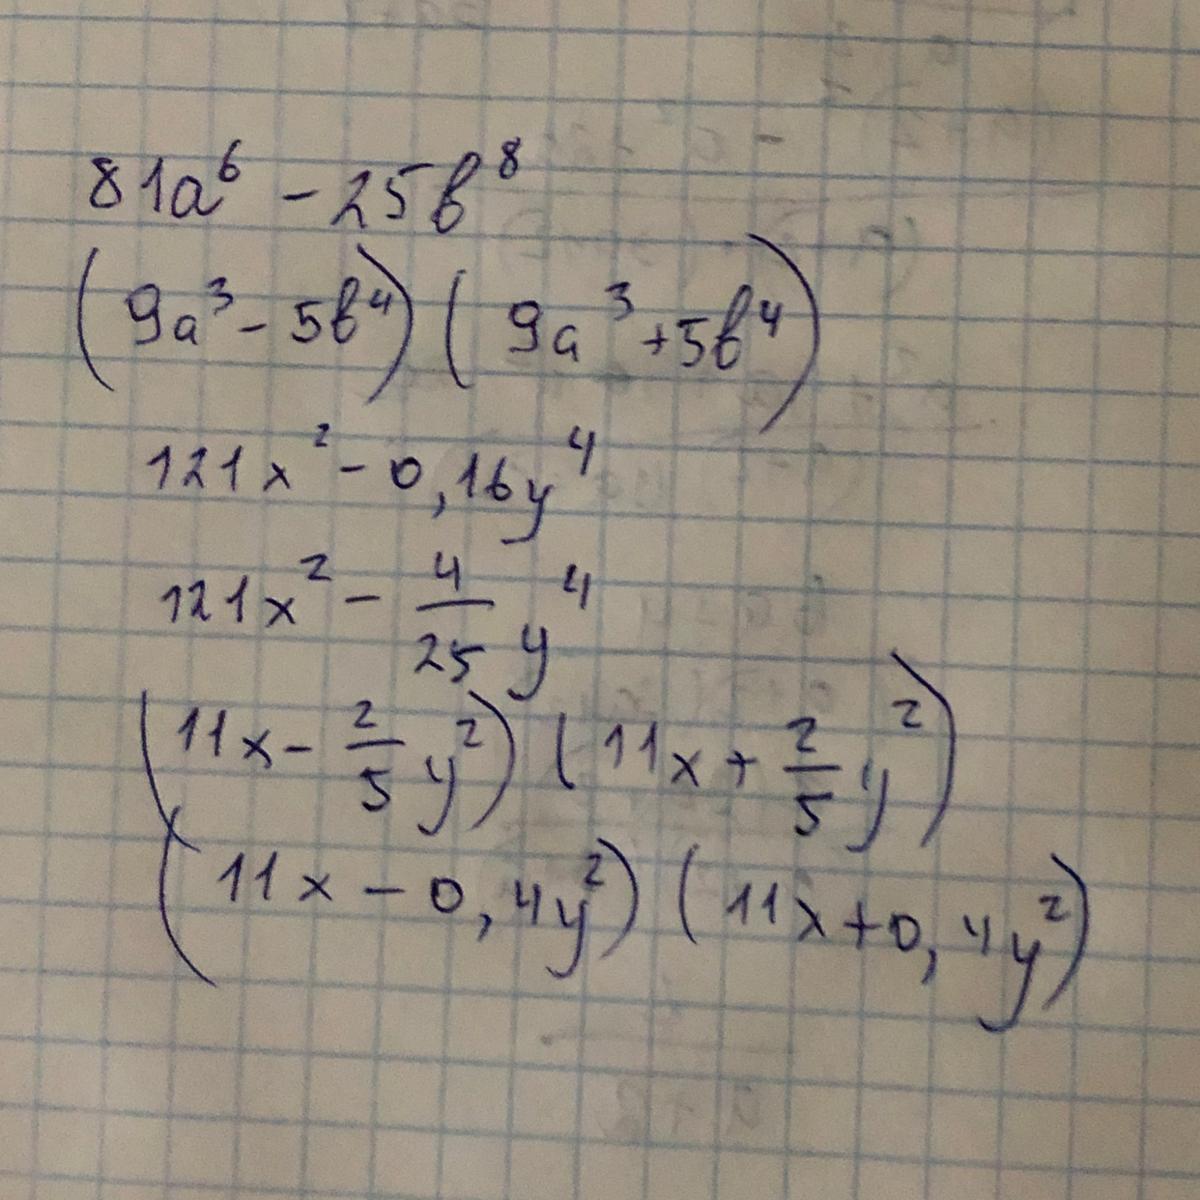 81a⁶ - 25в⁸
(9a³ - 5в⁴) (9a³ + 5в⁴)
121x² - 0,16y⁴
121x² - 4/25 y⁴
(11x - 2/5 y²) (11x + 2/5 y²)
(11x - 0,4y²) (11x + 0,4y²)